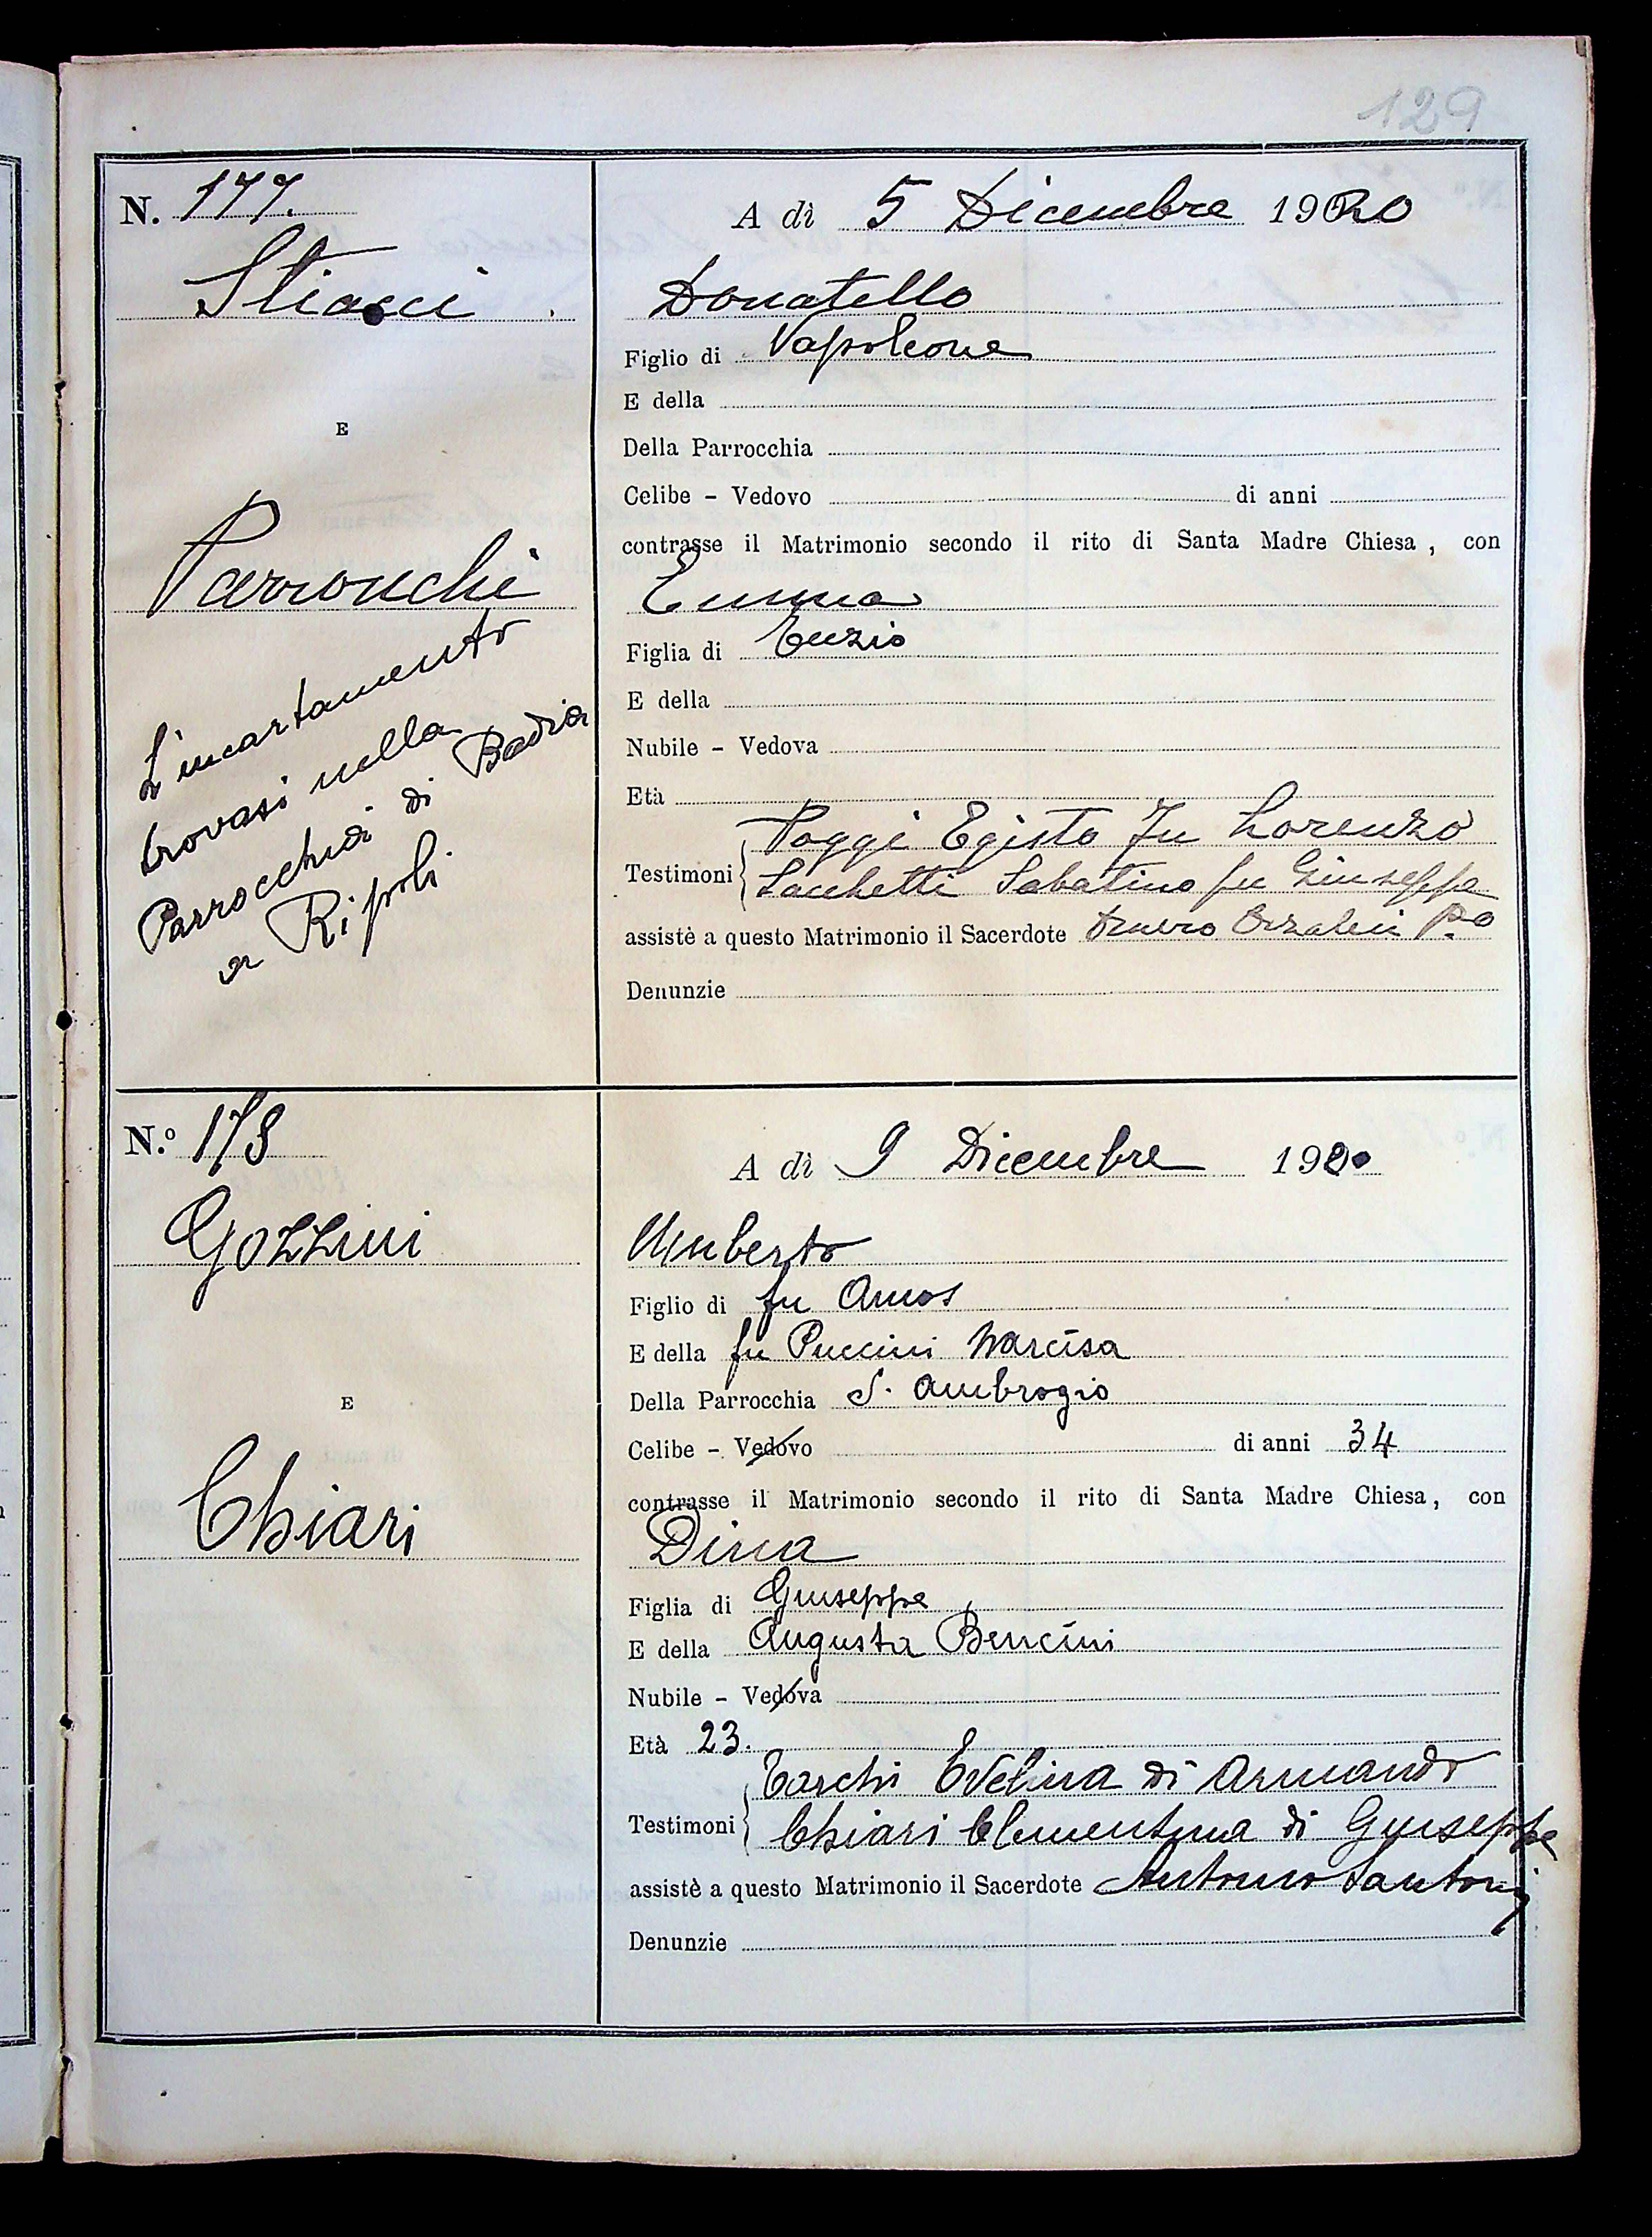 129
N. 177.
Stiasci
E
Parronchi
L'incartamento
trovasi nella
Parrocchia di Badia
a Ripoli
A dì 5 Dicembre 1920
Donatello
Figlio di Napoleone
E della
Della Parrocchia
Celibe - Vedovo di anni
contrasse il Matrimonio secondo il rito di Santa Madre Chiesa, con
Emma
Figlia di Enzio
E della
Nubile - Vedova
Età
Poggi Egisto fu Lorenzo
Testimoni
Sacchetti Sabatino fu Giuseppe
assistè a questo Matrimonio il Sacerdote Orzalesi
Denunzie
N.º 178
Gozzini
E
Chiari
A dì 9 Dicembre 1920
Umberto
Figlio di fu Amos
E della fu Puccini Narcisa
Della Parrocchia S. Ambrogio
Celibe - Vedovo di anni 34
contrasse il Matrimonio secondo il rito di Santa Madre Chiesa, con
Dina
Figlia di Giuseppe
E della Augusta Bencini
Nubile - Vedova
Età 23.
Tarchi Evelina di Armando
Testimoni
Chiari Clementina di Giuseppe
assistè a questo Matrimonio il Sacerdote Antonio Santoni
Denunzie